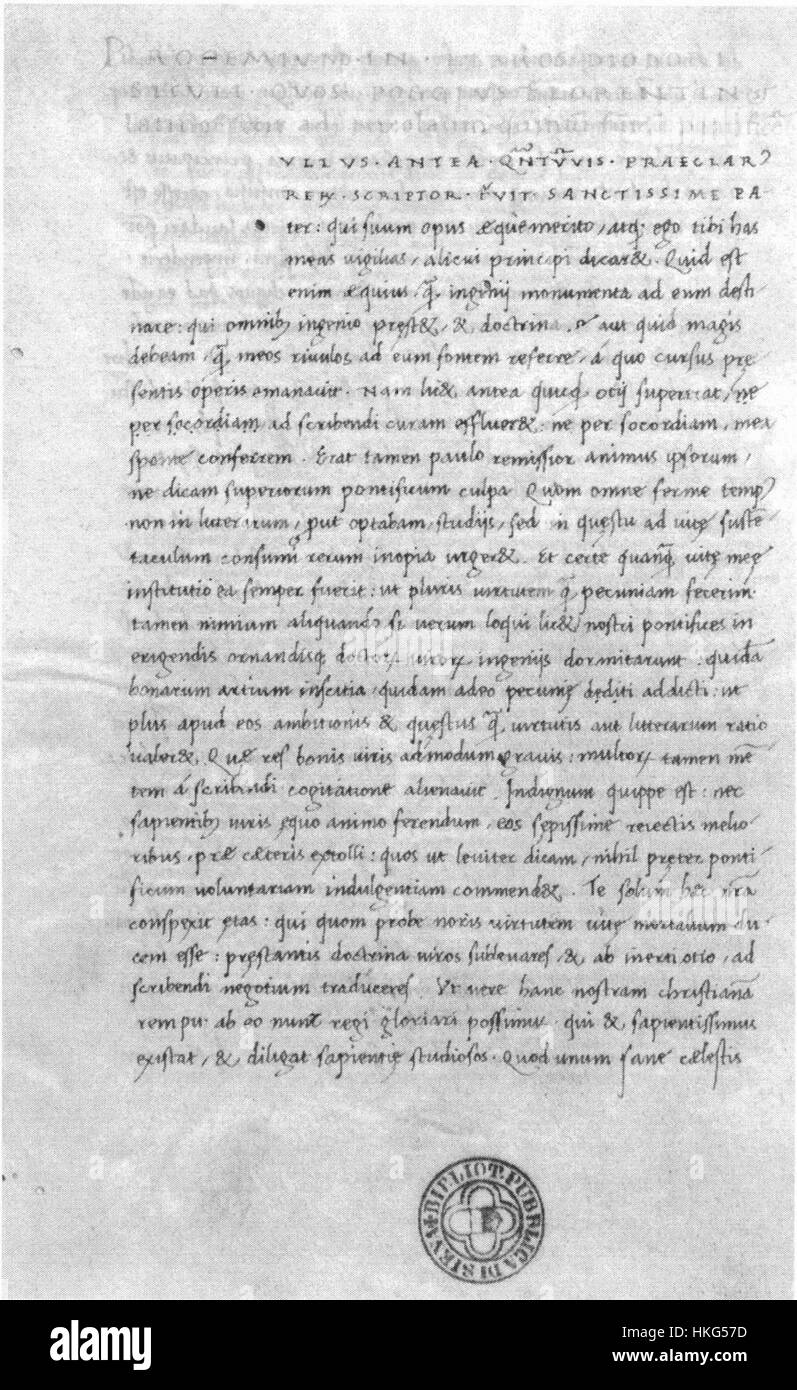 PROOEMIVM · IN · LIBROS DIODORI
SICVLI · QVOS · POGGIVS FLORENTINVS
latinos fecit ad Nicolaum quintum pontificē
VLLVS · ANTEA · QVĀTVVIS · PRAECLARꝰ
REꝜ · SCRIPTOR · FVIT · SANCTISSIME PA-
ter: qui suum opus æque merito, atq; ego tibi has
meas vigilias, alicui principi dicar&. Quid est
enim æquius, q̄ ingenij monumenta ad eum desti
nare: qui omnibꝫ ingenio prest&, & doctrina. aut quid magis
debeam, q̄ meos riuulos ad eum fontem referre, á quo cursus pre
sentis operis emanauit. Nam lic& antea quicq̄ otij supererat, ne
per socordiam ad scribendi curam efflueret: ne per socordiam, mea
sponte conferrem. Erat tamen paulo remissior animus ipsorum,
ne dicam superiorum pontificum culpa Quom omne ferme tempꝰ
non in litterarum, put optabam, studijs, sed in questu ad uitę susten
taculum consumi rerum inopia urger&. Et certe quanq̄ uitę meę
institutio ea semper fuerit: ut pluris uirtutem q̄ pecuniam fecerim
tamen nimium aliquando si uerum loqui lic& nostri pontifices in
erigendis ornandisq; doctoꝝ uiroꝝ ingenijs dormitarunt: quidā
bonarum artium inscitia, quidam adeo pecunię dediti addicti: ut
plus apud eos ambitionis & questus q̄ uirtutis aut litterarum ratio
ualer&. Quę res bonis uiris admodum grauis: multoꝝ tamen mē
tem á scribendi cogitatione alienauit. Indignum quippe est: nec
sapientibꝫ uiris ęquo animo ferendum, eos sepissime reiectis melio
ribus, prę cæteris extolli: quos ut leuiter dicam, nihil pręter ponti
ficum voluntariam indulgentiam commend&. Te solum hec nr̄a
conspexit ętas: qui quom probe noris virtutem uitę mortalium du
cem esse: pręstantis doctrina viros subleuares, & ab inerti otio, ad
scribendi negotium traduceres. Vt uere hanc nostram christianā
rempu· ab eo nunc regi gloriari possimus· qui & sapientissimus
existat, & diligat sapientię studiosos. Quod unum sane cælestis
BIBLIOT. PUBBLICA DI SIENA
alamy
Image ID: HKG57D
www.alamy.com